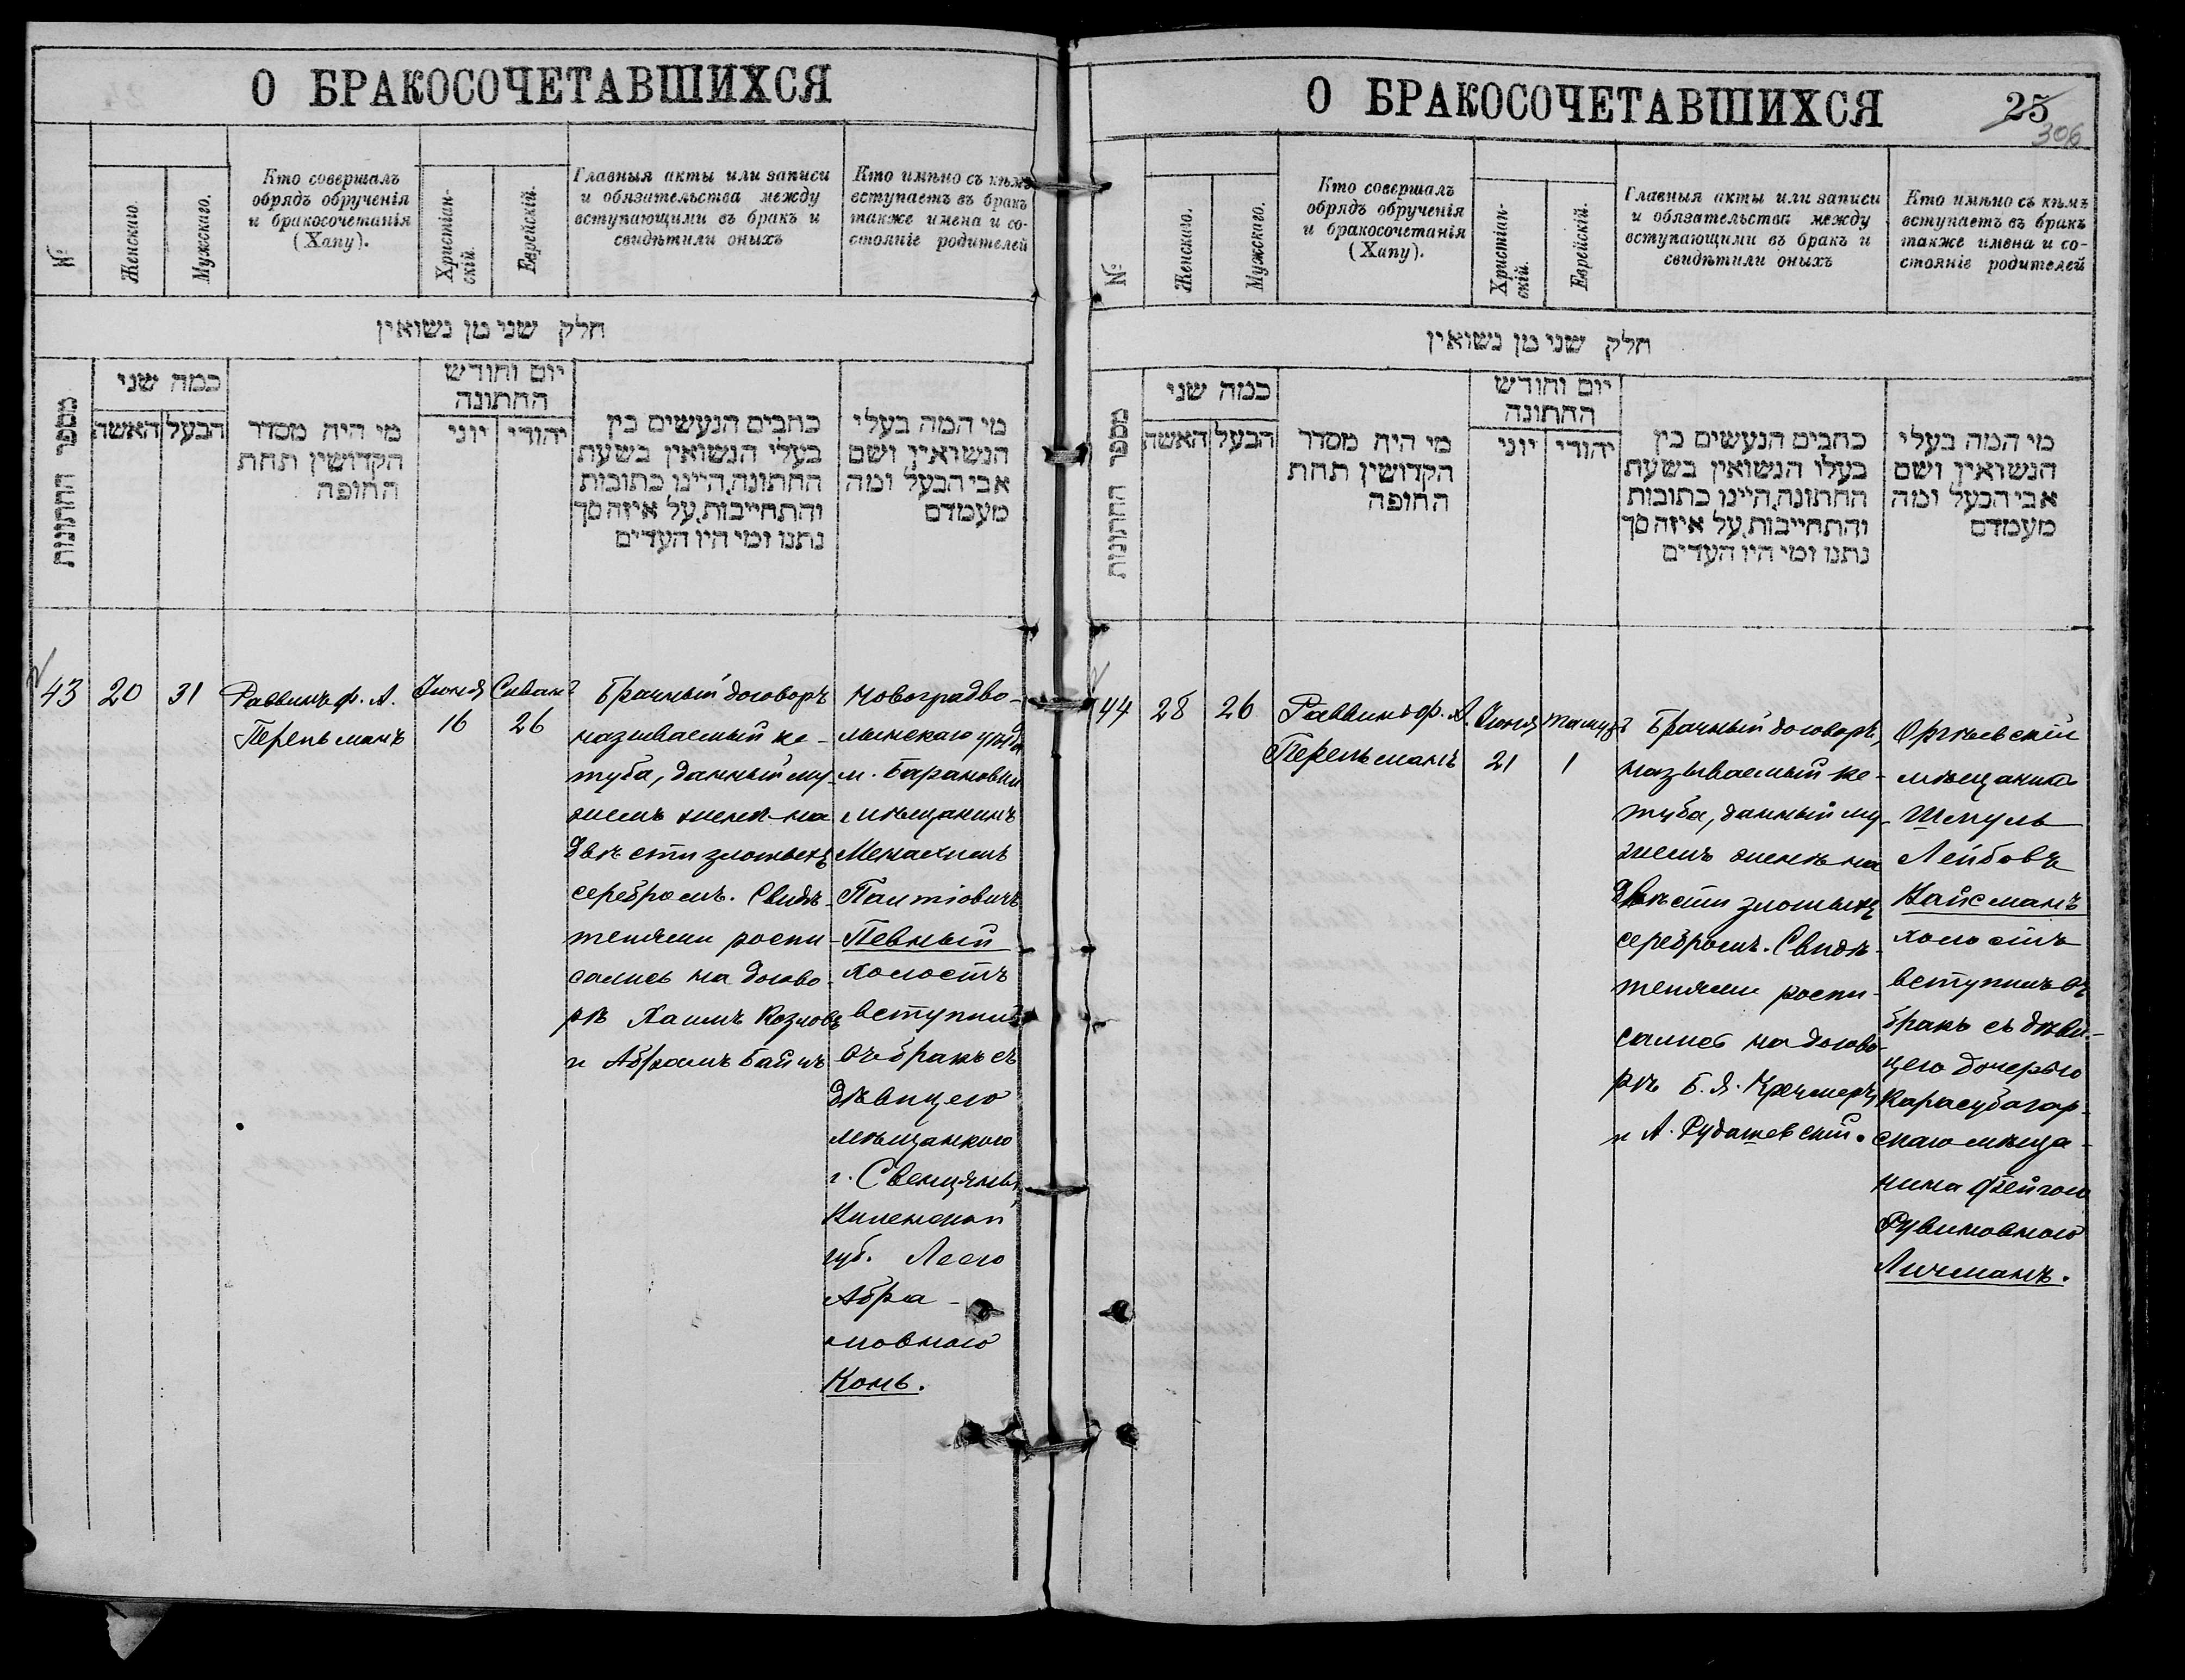 О БРАКОСОЧЕТАВШИХСЯ
№
Женскаго.
Мужскаго.
Кто совершалъ
обрядъ обрученія
и бракосочетанія
(Хапу).
Христіан-
скій.
Еврейскій.
Главныя акты или записи
и обязательства между
вступающими въ бракъ и
свидѣтили оныхъ
Кто имѣно съ кѣмъ
вступаетъ въ бракъ
также имена и со-
стояніе родителей
חלק שני מן נשואין
מספר החתונות
כמה שני
האשה
הבעל
מי היה מסדר
הקדושין תחת
החופה
יום וחודש
החתונה
יוני
יהודי
כתבים הנעשים בין
בעלי הנשואין בשעת
החתונה,היינו כתובות
והתחייבות,על איזה סך
נתנו ומי היו העדים
מי המה בעלי
הנשואין ושם
אבי הבעל ומה
מעמדם
43
20
31
Раввинъ ф. А.
Перельманъ
Іюня
16
Сиванъ
26
Брачный договоръ
называемый ке-
туба, данный му-
жемъ женѣ на
двѣсти злотыхъ
серебромъ. Свидѣ-
телями роспи-
сались на догово-
рѣ Хаимъ Козловъ
и Абрамъ Байнъ
Новоградво-
лынскаго уѣзда
м. Барановки
мѣщанинъ
Менахимъ
Палтіовичъ
Певный
холостъ
вступилъ
въ бракъ съ
дѣвицею
мѣщанкою
г. Свенцяны,
Виленской
губ. Леею
Абра-
мовною
Конъ.
О БРАКОСОЧЕТАВШИХСЯ
25
306
№
Женскаго.
Мужскаго.
Кто совершалъ
обрядъ обрученія
и бракосочетанія
(Хапу).
Христіан-
скій.
Еврейскій.
Главныя акты или записи
и обязательства между
вступающими въ бракъ и
свидѣтили оныхъ
Кто имѣно съ кѣмъ
вступаетъ въ бракъ
также имена и со-
стояніе родителей
חלק שני מן נשואין
מספר החתונות
כמה שני
האשה
הבעל
מי היה מסדר
הקדושין תחת
החופה
יום וחודש
החתונה
יוני
יהודי
כתבים הנעשים בין
בעלי הנשואין בשעת
החתונה,היינו כתובות
והתחייבות,על איזה סך
נתנו ומי היו העדים
מי המה בעלי
הנשואין ושם
אבי הבעל ומה
מעמדם
44
28
26
Раввинъ ф. А.
Перельманъ
Іюня
21
Тамузъ
1
Брачный договоръ,
называемый ке-
туба, данный му-
жемъ женѣ на
двѣсти злотыхъ
серебромъ. Свидѣ-
телями роспи-
сались на догово-
рѣ Б. Я. Кречмеръ
и А. Рудашевскій.
Оргѣевскій
мѣщанинъ
Шмуль
Лейбовъ
Вайсманъ
холостъ
вступилъ въ
бракъ съ дѣви-
цею дочерью
Карасубазар-
скаго мѣща-
нина Фейгою
Рувиновною
Личманъ.